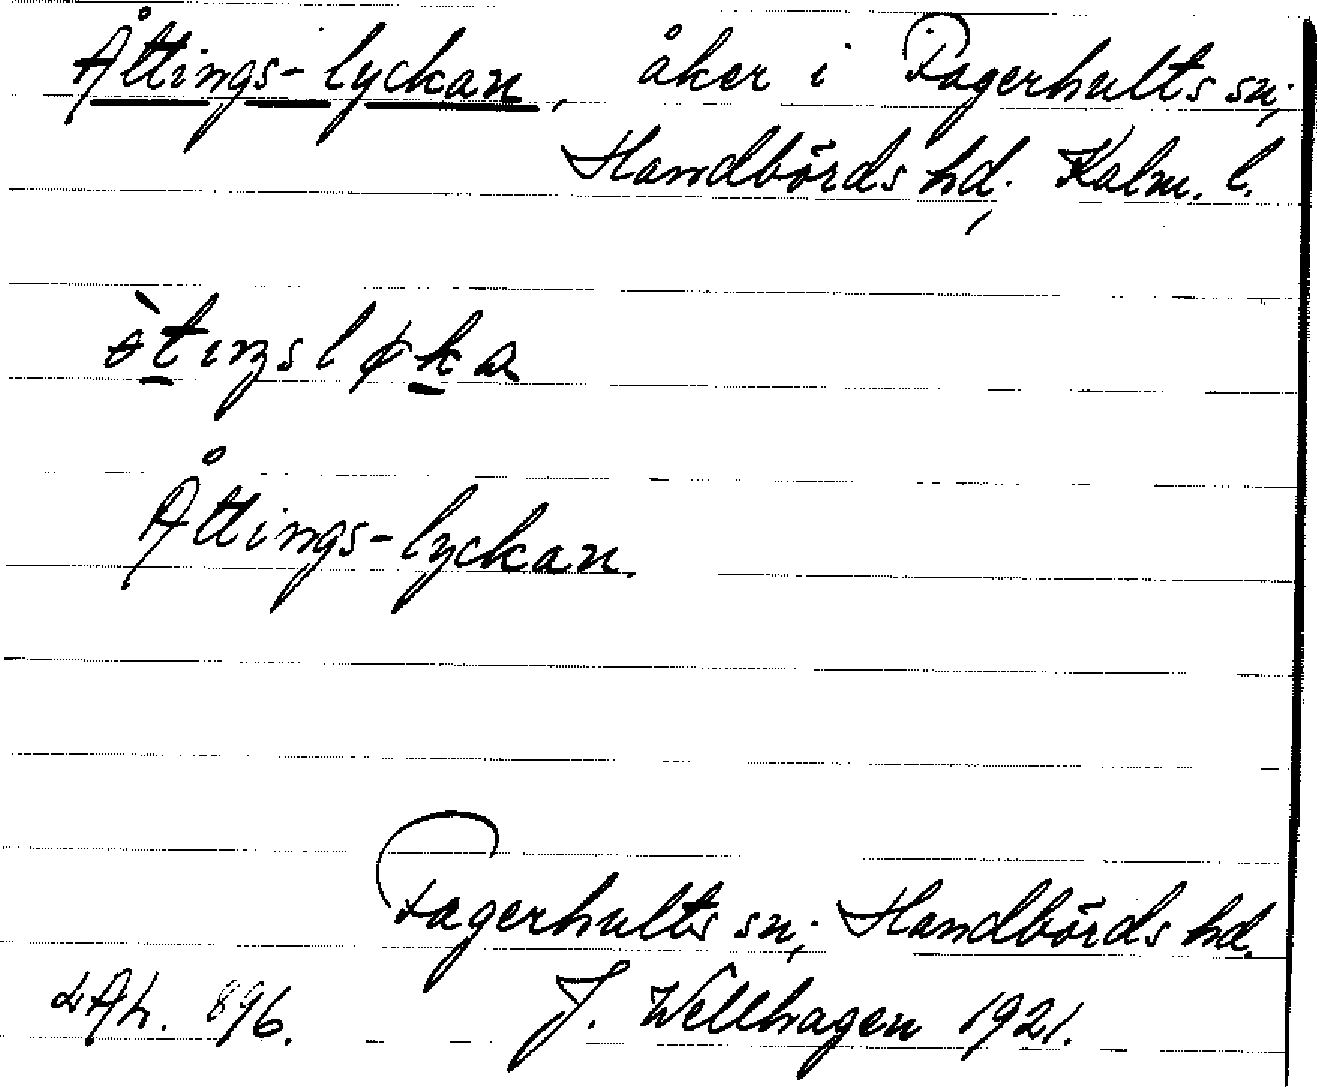 Åttings-lyckan, åker i Fagerhults sn;
Handbörds hd; Kalm. l.
Åttings-lyckan.
Fagerhults sn; Handbörds hd.
J. Wellhagen 1921.